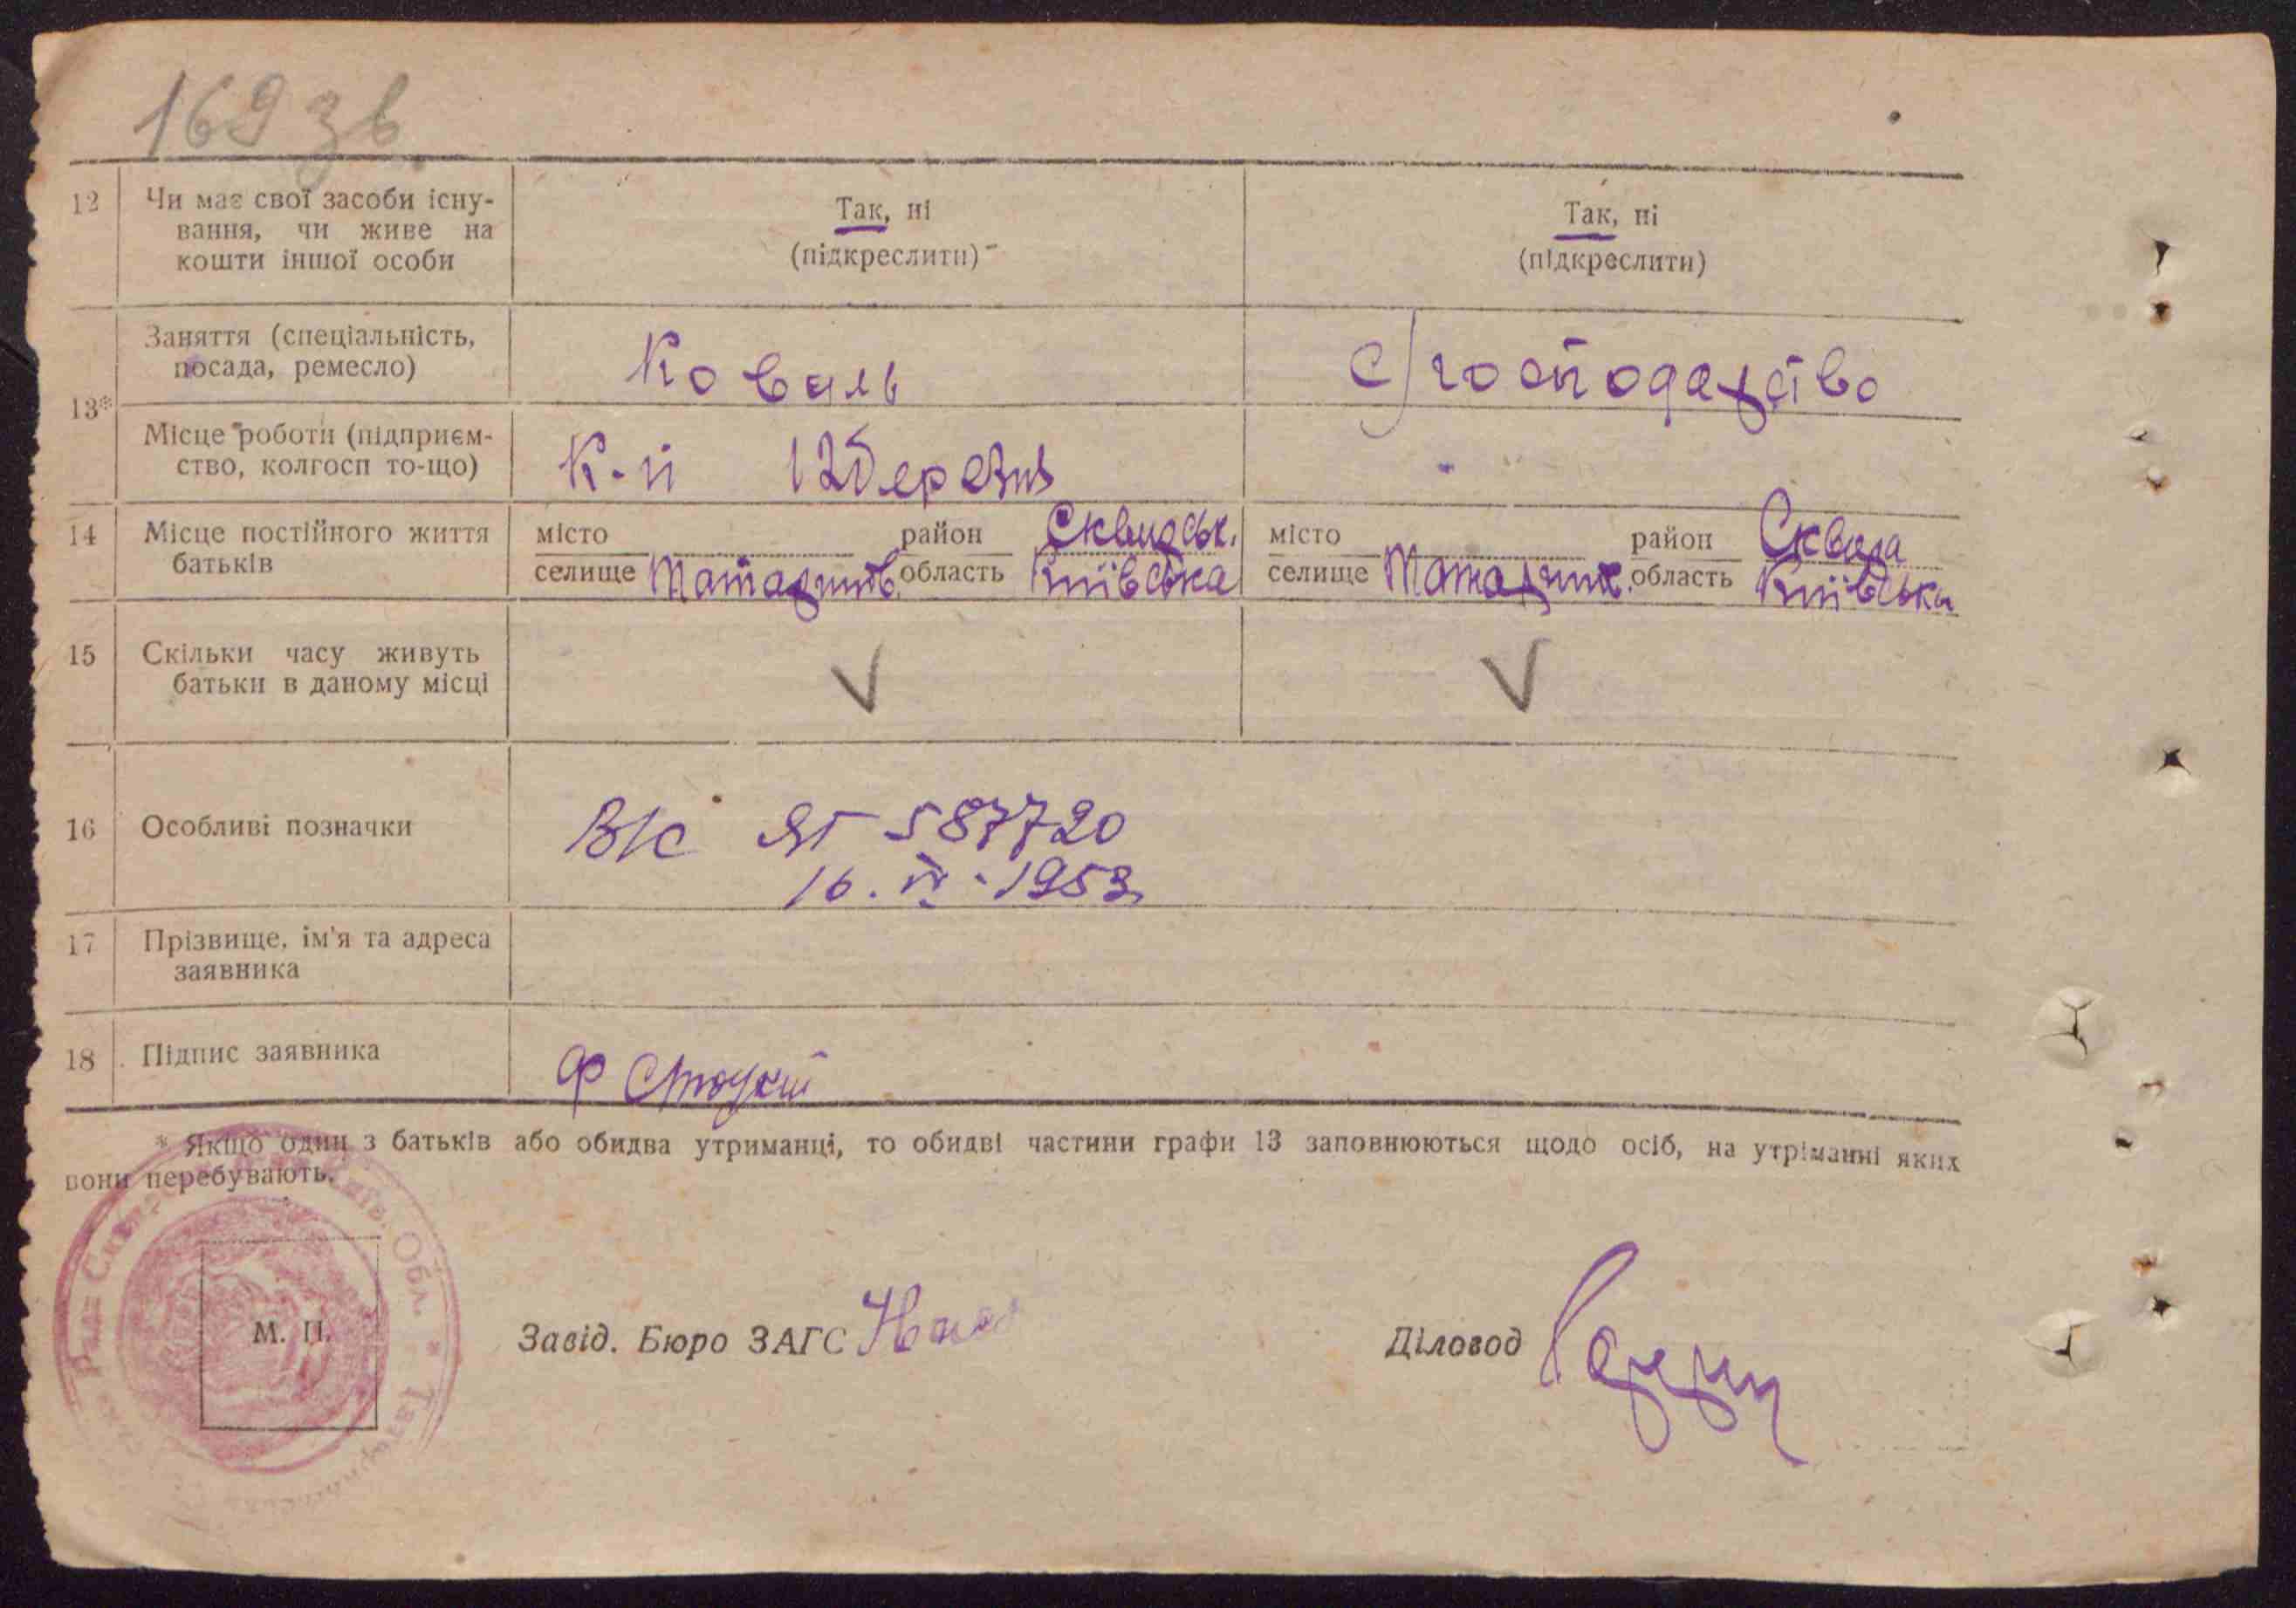 169 зв
12 Чи має свої засоби існу- Так, ні Так, ні
вання, чи живе на (підкреслити) (підкреслити)
кошти іншої особи
13* Заняття (спеціальність, Коваль с/господарство
посада, ремесло)
Місце роботи (підприєм- К-п 12 Дерезня
ство, колгосп то-що)
14 Місце постійного життя місто район Сквирськ. місто район Сквира
батьків селище Татаринів. область Київська селище Татарин. область Київська
15 Скільки часу живуть V V
батьки в даному місці
16 Особливі позначки В/с ЯГ 587720
16. VI. 1953
17 Прізвище, ім'я та адреса
заявника
18 Підпис заявника Ф Стоукий
* Якщо один з батьків або обидва утриманці, то обидві частини графи 13 заповнюються щодо осіб, на утріманні яких
вони перебувають.
Обл. *
М. П. Завід. Бюро ЗАГС Діловод